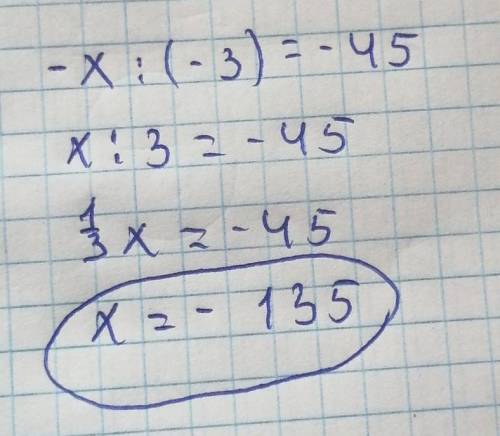 -x : (-3) = -45
x : 3 = -45
1/3 x = -45
x = - 135